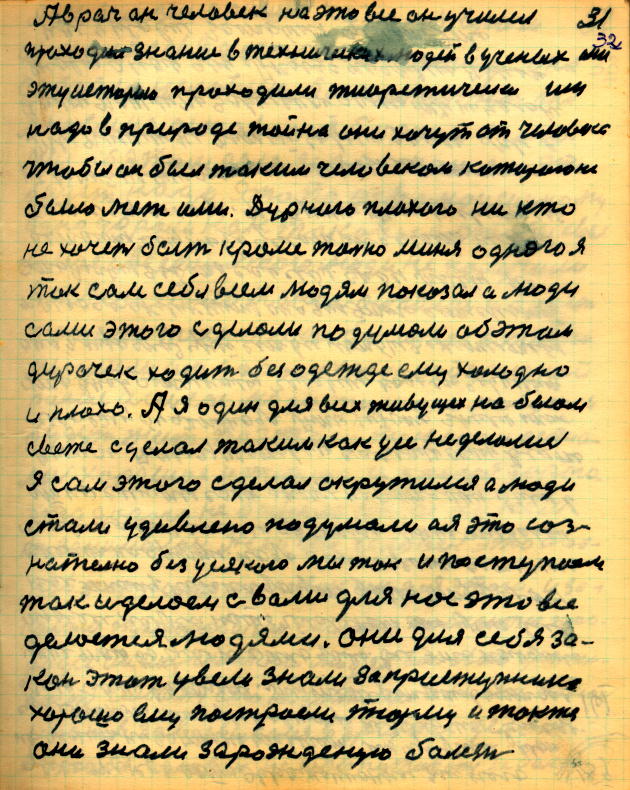 А врач он человек на это все он училсл 31
проходил знание в техничиках людей в ученых они 32
эту историю проходили тиоретически им
надо в природе тойна они хочут от человека
чтобы он был таким человеком которого не
было мет ими. Дурного плохого ни кто
не хочет болт кроме толко миня одного я
так сам себя всем людям показал а люди
сами этого сделоли подумали об этом
дурачек ходит без одежде ему холодно
и плохо. А я один для всех живущих на белом
свете сделал таким как усе не делоли
Я сам этого сделал окружился а люди
стали удивлено подумали а я это соз-
нателно без усякого мы так и поступаем
так и делоем с вами для нас это все
делоется людями. они для себя за-
кон этот увели знали за приступника
хорошо ему построели тюрму и также
они знали зарожденую болезн